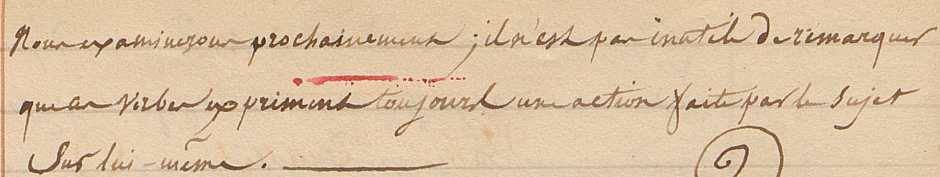 Nous examinerons prochainement ; il n'est pas inutile de remarquer
que ces verbes expriment toujours une action faite par le sujet
sur lui-même.
2